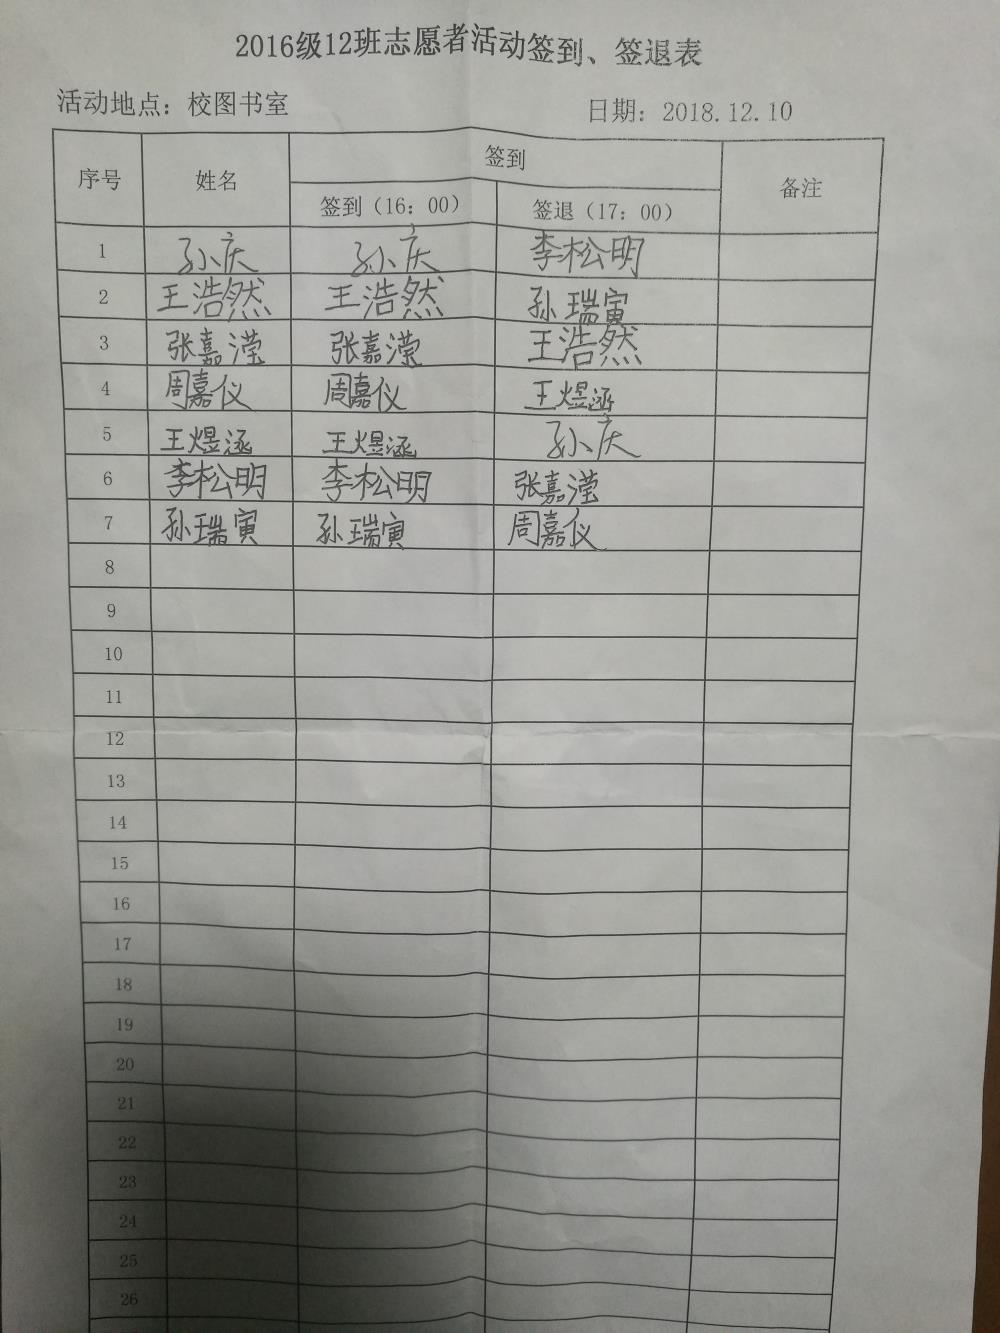 2016级12班志愿者活动签到、签退表
活动地点：校图书室 日期：2018.12.10
序号 姓名 签到 备注
签到（16：00） 签退（17：00）
1 孙庆 孙庆 李松明
2 王浩然 王浩然 孙瑞寅
3 张嘉滢 张嘉滢 王浩然
4 周嘉仪 周嘉仪 王煜涵
5 王煜涵 王煜涵 孙庆
6 李松明 李松明 张嘉滢
7 孙瑞寅 孙瑞寅 周嘉仪
8
9
10
11
12
13
14
15
16
17
18
19
20
21
22
23
24
25
26